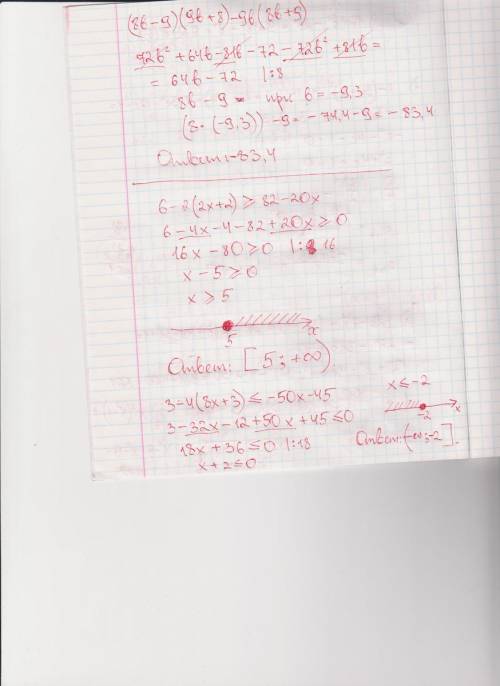 (8b-9)(9b+8)-9b(8b+9)
72b²+64b-81b-72-72b²+81b=
=64b-72 |:8
8b-9= при b=-9,3
(8·(-9,3))-9=-74,4-9=-83,4
Ответ:-83,4
6-2(2x+2)≥82-20x
6-4x-4-82+20x≥0
16x-80≥0 |:16
x-5≥0
x≥5
5 x
Ответ: [5;+∞)
3-4(8x+3)≤-50x-45
3-32x-12+50x+45≤0
18x+36≤0 |:18
x+2≤0
x≤-2
-2 x
Ответ:(-∞;-2].